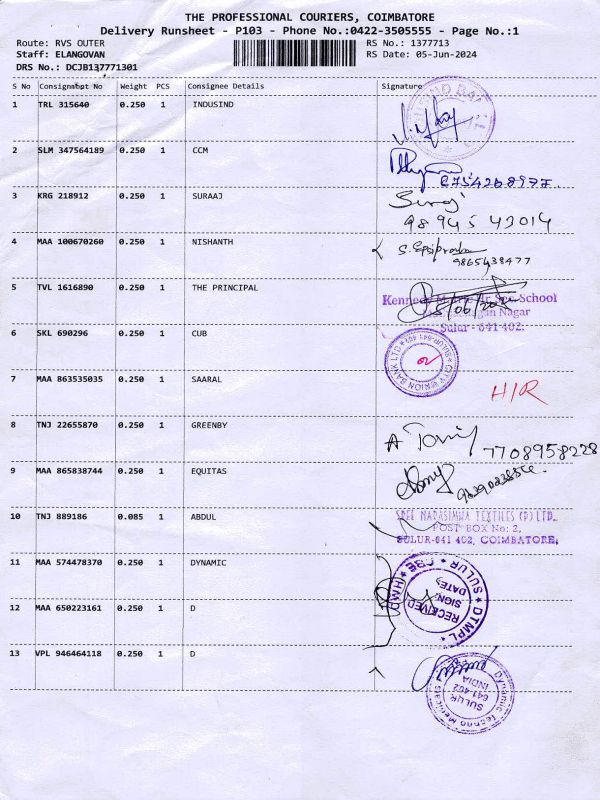 THE PROFESSIONAL COURIERS, COIMBATORE
Delivery Runsheet - P103 - Phone No.:0422-3505555 - Page No.:1
Route: RVS OUTER RS No.: 1377713
Staff: ELANGOVAN RS Date: 05-Jun-2024
DRS No.: DCJB137771301
S No Consignment No Weight PCS Consignee Details Signature
1 TRL 315640 0.250 1 INDUSIND
2 SLM 347564189 0.250 1 CCM
3 KRG 218912 0.250 1 SURAAJ
Suraj
98945 43014
4 MAA 100670260 0.250 1 NISHANTH
9865438477
5 TVL 1616890 0.250 1 THE PRINCIPAL
Sec. School
Nagar
Sulur - 641 402.
6 SKL 690296 0.250 1 CUB
CITY UNION BANK LTD
SULUR-641 402
7 MAA 863535035 0.250 1 SAARAL
H/R
8 TNJ 22655870 0.250 1 GREENBY
7708958228
9 MAA 865838744 0.250 1 EQUITAS
10 TNJ 889186 0.085 1 ABDUL
SREE NARASIMHA TEXTILES (P) LTD.,
POST BOX No: 2,
SULUR-641 402, COIMBATORE.
11 MAA 574478370 0.250 1 DYNAMIC
12 MAA 650223161 0.250 1 D
DTMPL HMD SULUR CBE
RECEIVED
SIGN:
DATE:
13 VPL 946464118 0.250 1 D
SULUR
641 402
INDIA